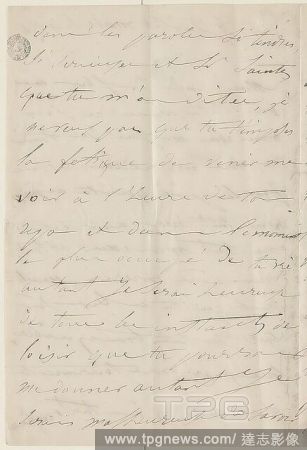 dans les paroles si tendres
et si
que tu m'as dites, je
ne veux pas que tu
la fatigue de venir me
voir à l'heure de ton
repos et dans le moment
le plus occupé de ta vie
autant je serai heureuse
de tous les instants de
loisir que tu pourras
me donner autant je
serais malheureuse
TPG
www.tpgnews.com/達志影像